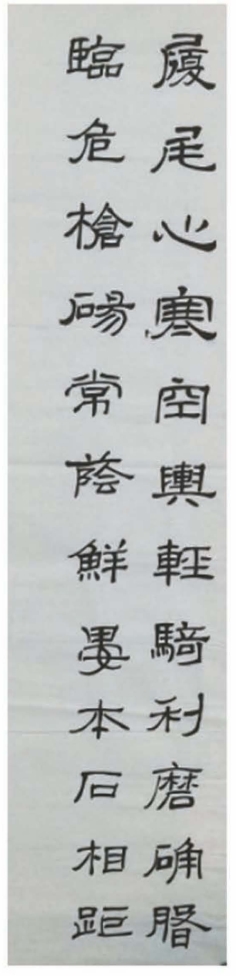 履尾心寒空輿輕騎利磨确
臨危槍碭常蔭鮮晏本石相距